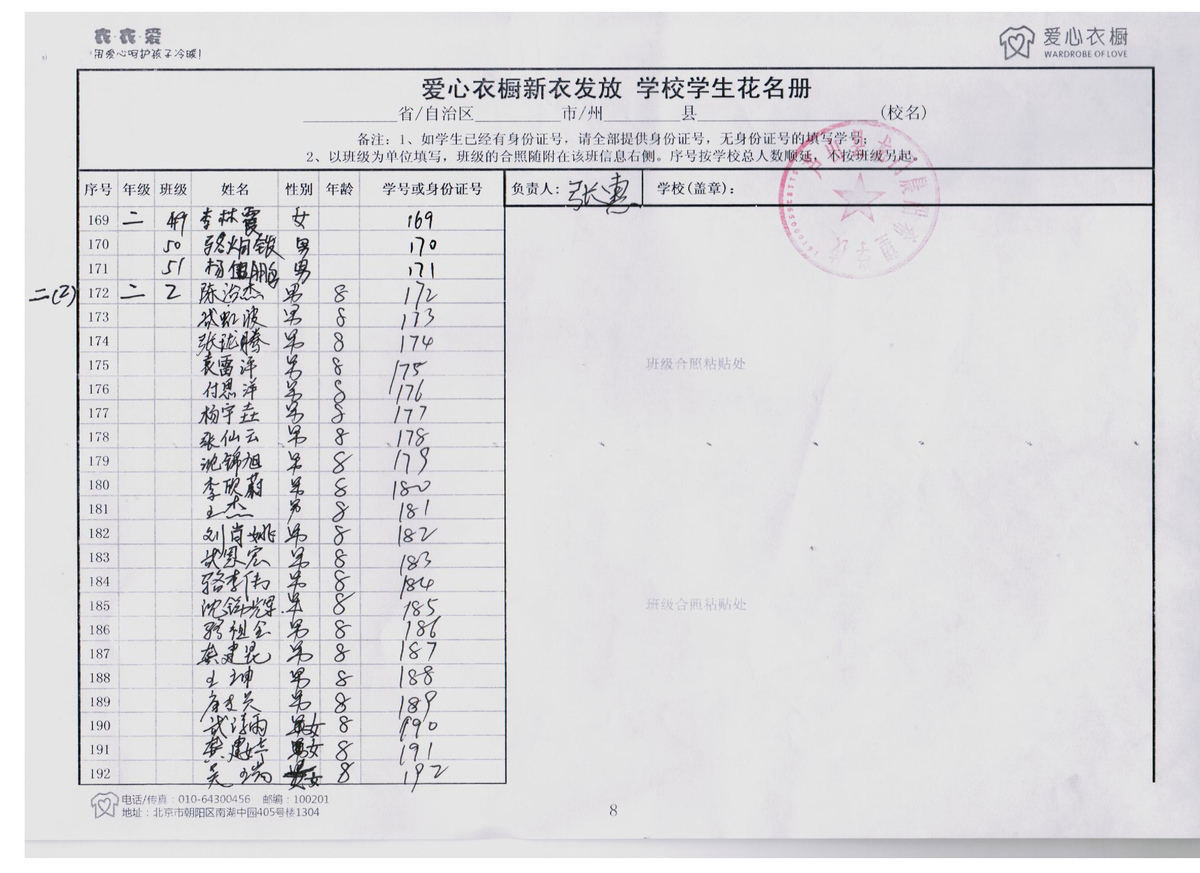 衣·衣·爱
用爱心呵护孩子冷暖!
爱心衣橱
WARDROBE OF LOVE
爱心衣橱新衣发放 学校学生花名册
省/自治区 市/州 县 (校名)
备注: 1、如学生已经有身份证号, 请全部提供身份证号, 无身份证号的填写学号;
2、以班级为单位填写, 班级的合照随附在该班信息右侧。序号按学校总人数顺延, 不按班级另起。
序号 年级 班级 姓名 性别 年龄 学号或身份证号 负责人: 张惠 学校(盖章):
169 二 49 李林霞 女 169
170 50 男 170
171 51 杨 鹏 男 171
二(2) 172 二 2 陈治杰 男 8 172
173 虹波 男 8 173
174 张珑腾 男 8 174
175 袁雷洋 男 8 175
176 付恩洋 男 8 176
177 杨宇垚 男 8 177
178 张仙云 男 8 178
179 沈锦旭 男 8 179
180 李欣蔚 男 8 180
181 王杰 男 8 181
182 刘肖姚 男 8 182
183 武恩宏 男 8 183
184 骆李伟 男 8 184
185 沈锦辉 男 8 185
186 祖全 男 8 186
187 龚建昆 男 8 187
188 王坤 男 8 188
189 男 8 189
190 武 雨 女 8 190
191 龚建婷 女 8 191
192 吴瑞 女 8 192
班级合照粘贴处
班级合照粘贴处
电话/传真: 010-64300456 邮编: 100201
地址: 北京市朝阳区南湖中园405号楼1304
8